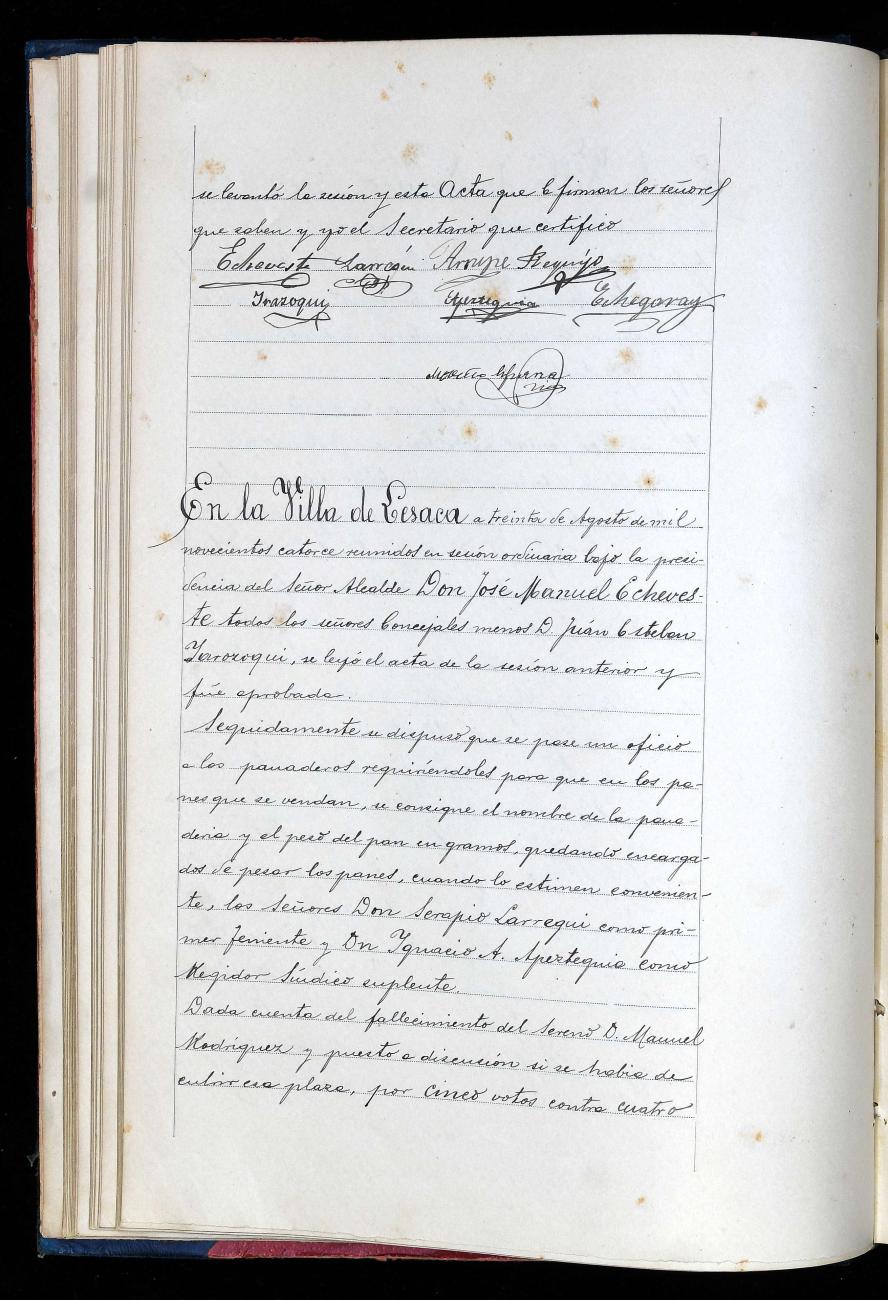 se levantó la sesión y esta Acta que la firman los señores
que saben y yo el Secretario que certifico
Echeveste Larregui Arrupe Requijo
Irazoqui Apezteguia Echegaray
En la Villa de Lesaca a treinta de Agosto de mil
novecientos catorce reunidos en sesión ordinaria bajo la presi-
dencia del Señor Alcalde Don José Manuel Echeves-
te todos los señores Concejales menos D. Juán Esteban
Yarozoqui, se leyó el acta de la sesión anterior y
fúe aprobada.
Seguidamente se dispuso que se pase un oficio
a los panaderos requiriéndoles para que en los pa-
nes que se vendan, se consigne el nombre de la pana-
deria y el peso del pan en gramos, quedando encarga-
dos de pesar los panes, cuando lo estimen convenien-
te, los Señores Don Serapio Larregui como pri-
mer Teniente y Dn Ignacio A. Apezteguia como
Regidor Síndico suplente.
Dada cuenta del fallecimiento del Sereno D. Manuel
Rodríguez y puesto a discusión si se habia de
cubrir esa plaza, por cinco votos contra cuatro